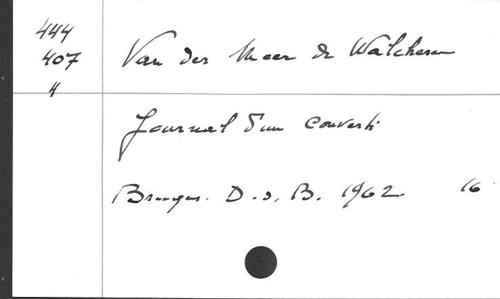 444
407
4
Van der Meer de Walcheren
Journal d'un converti
Bruges. D.d.B. 1962 16